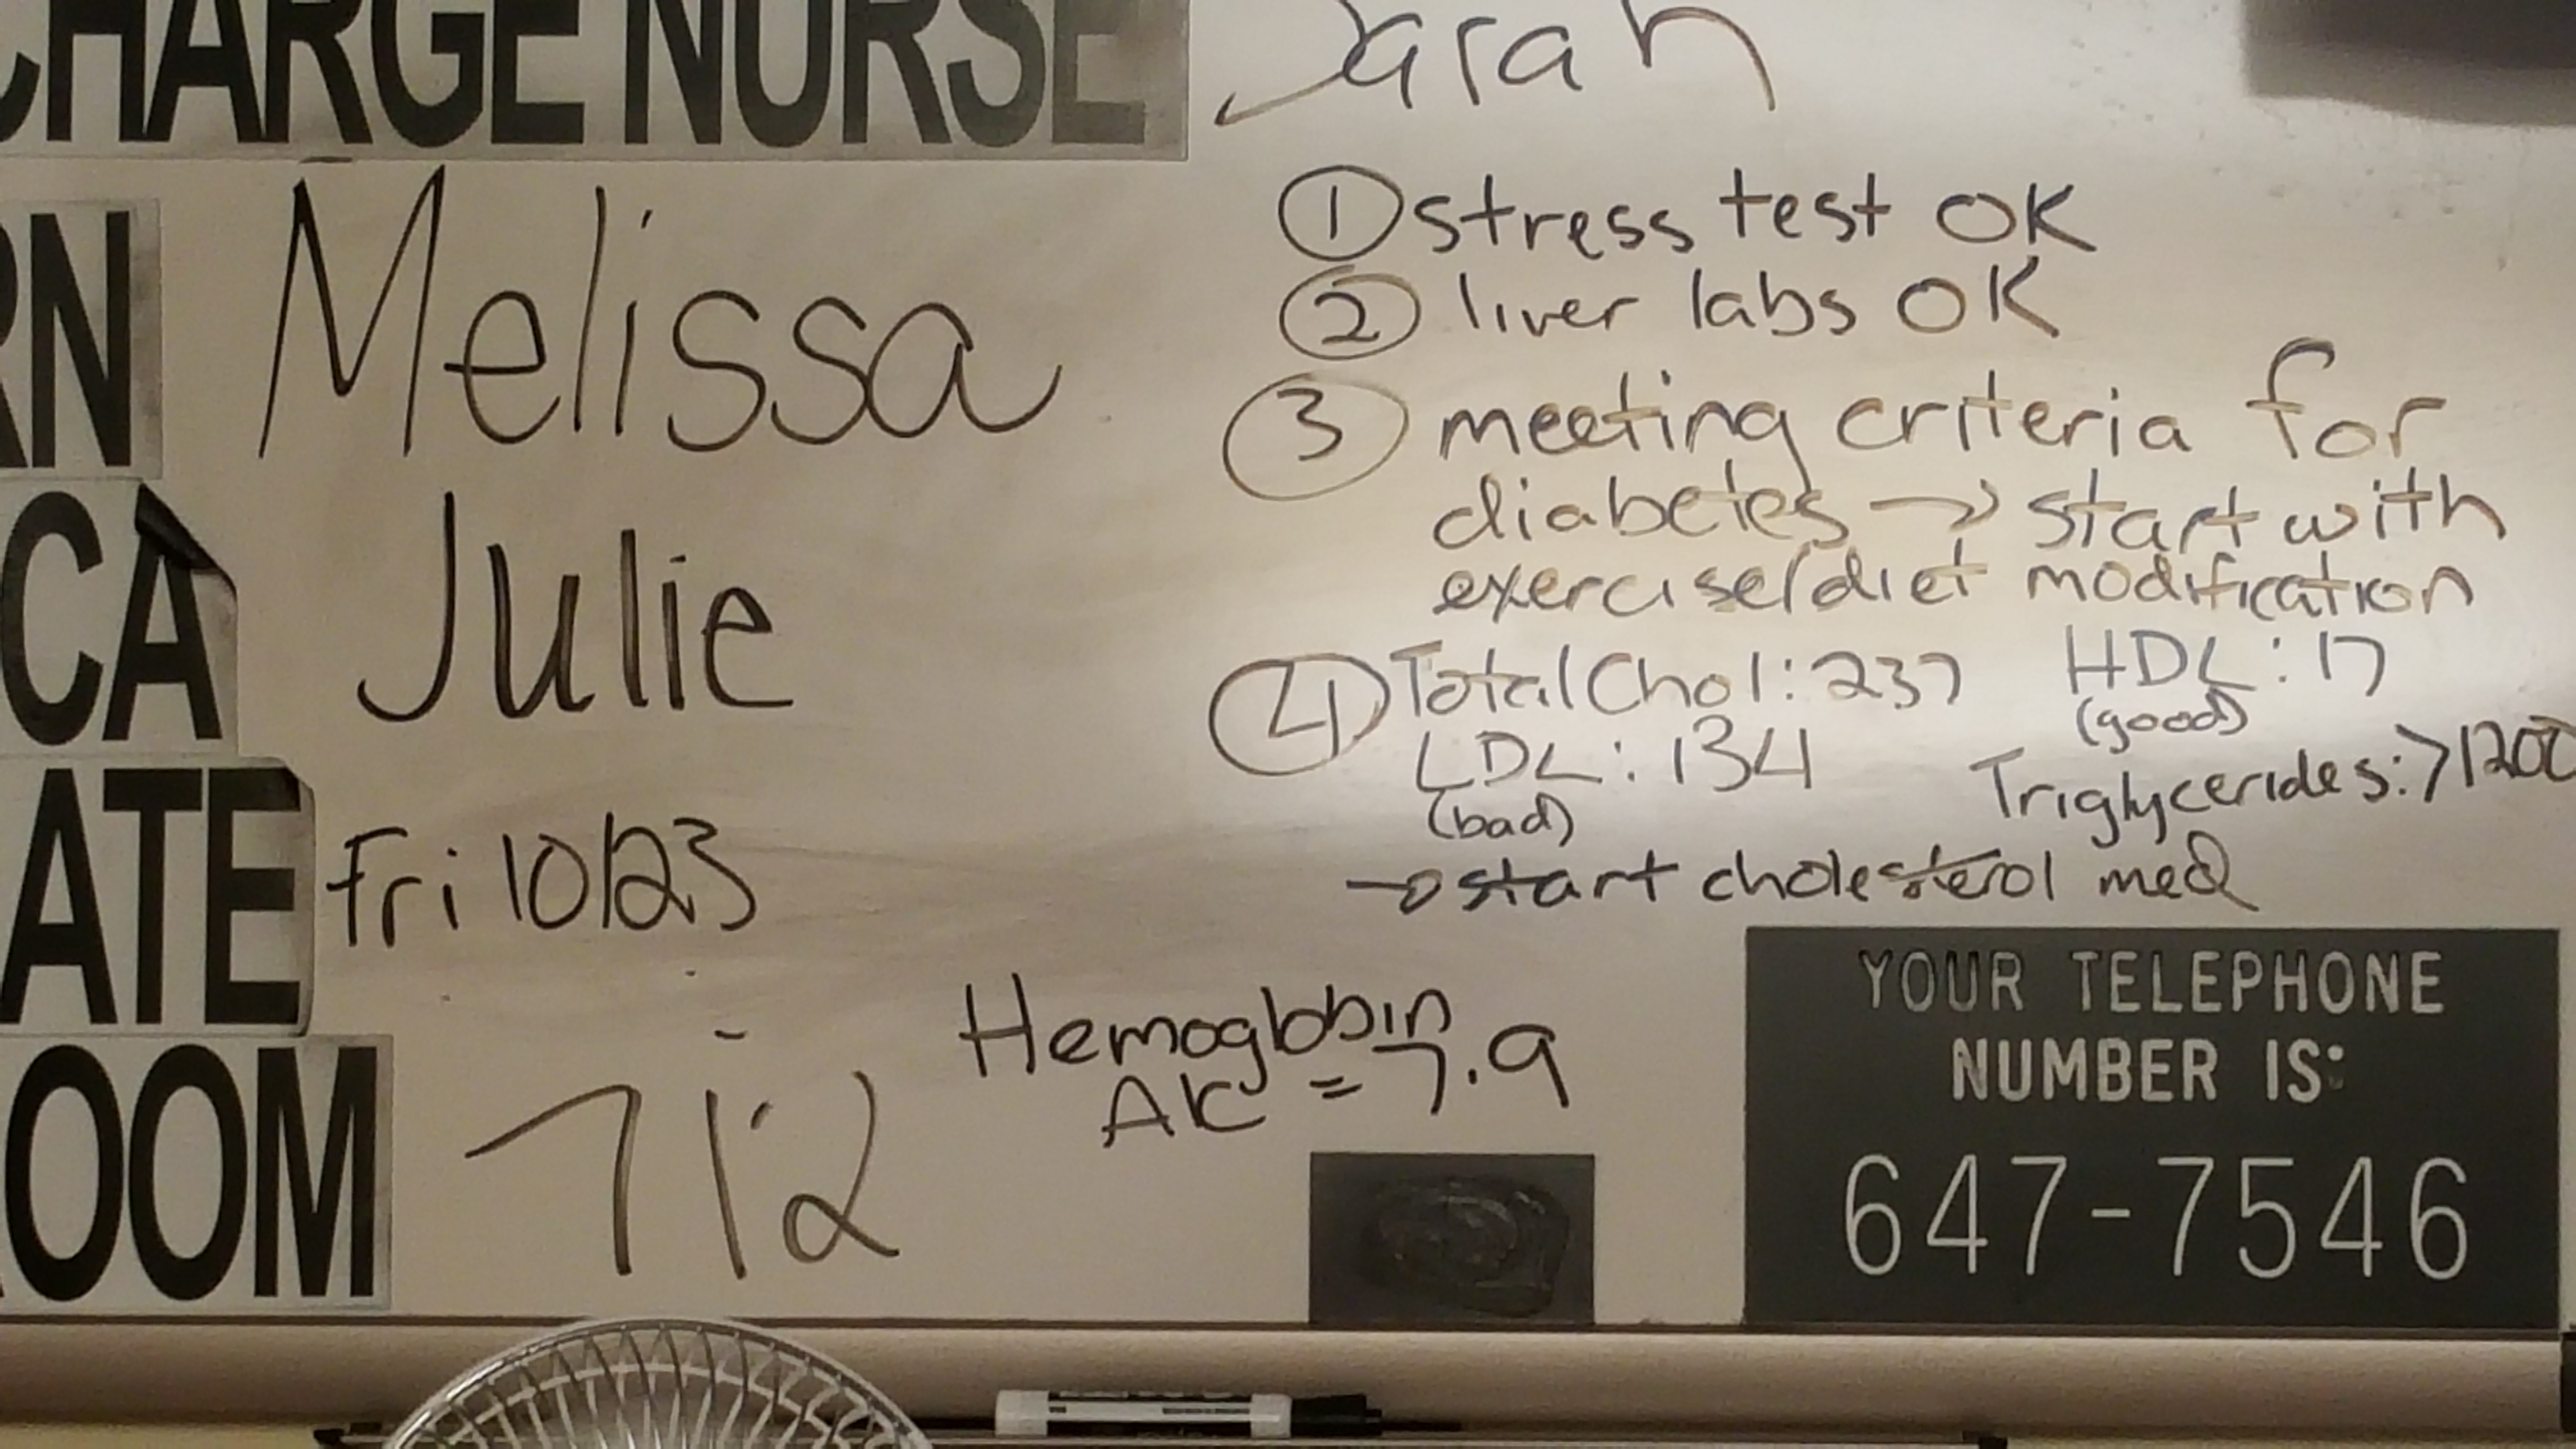 CHARGE NURSE Sarah
RN Melissa
CA Julie
ATE Fri 10/23
OOM 712
① stress test OK
② liver labs OK
③ meeting criteria for
diabetes → start with
exercise/diet modification
④ Total Chol: 237 HDL: 17
(good)
LDL: 134 Triglycerides: >1200
(bad)
→ start cholesterol med
Hemoglobin
A1C = 7.9
YOUR TELEPHONE
NUMBER IS:
647-7546